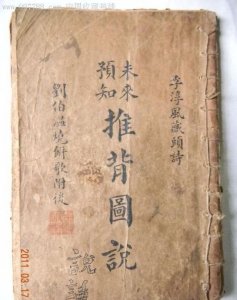 www.997788.com 中国收藏热线
李淳風藏頭詩
未來
預知
推背圖說
劉伯温燒餅歌附後
2011-03-17